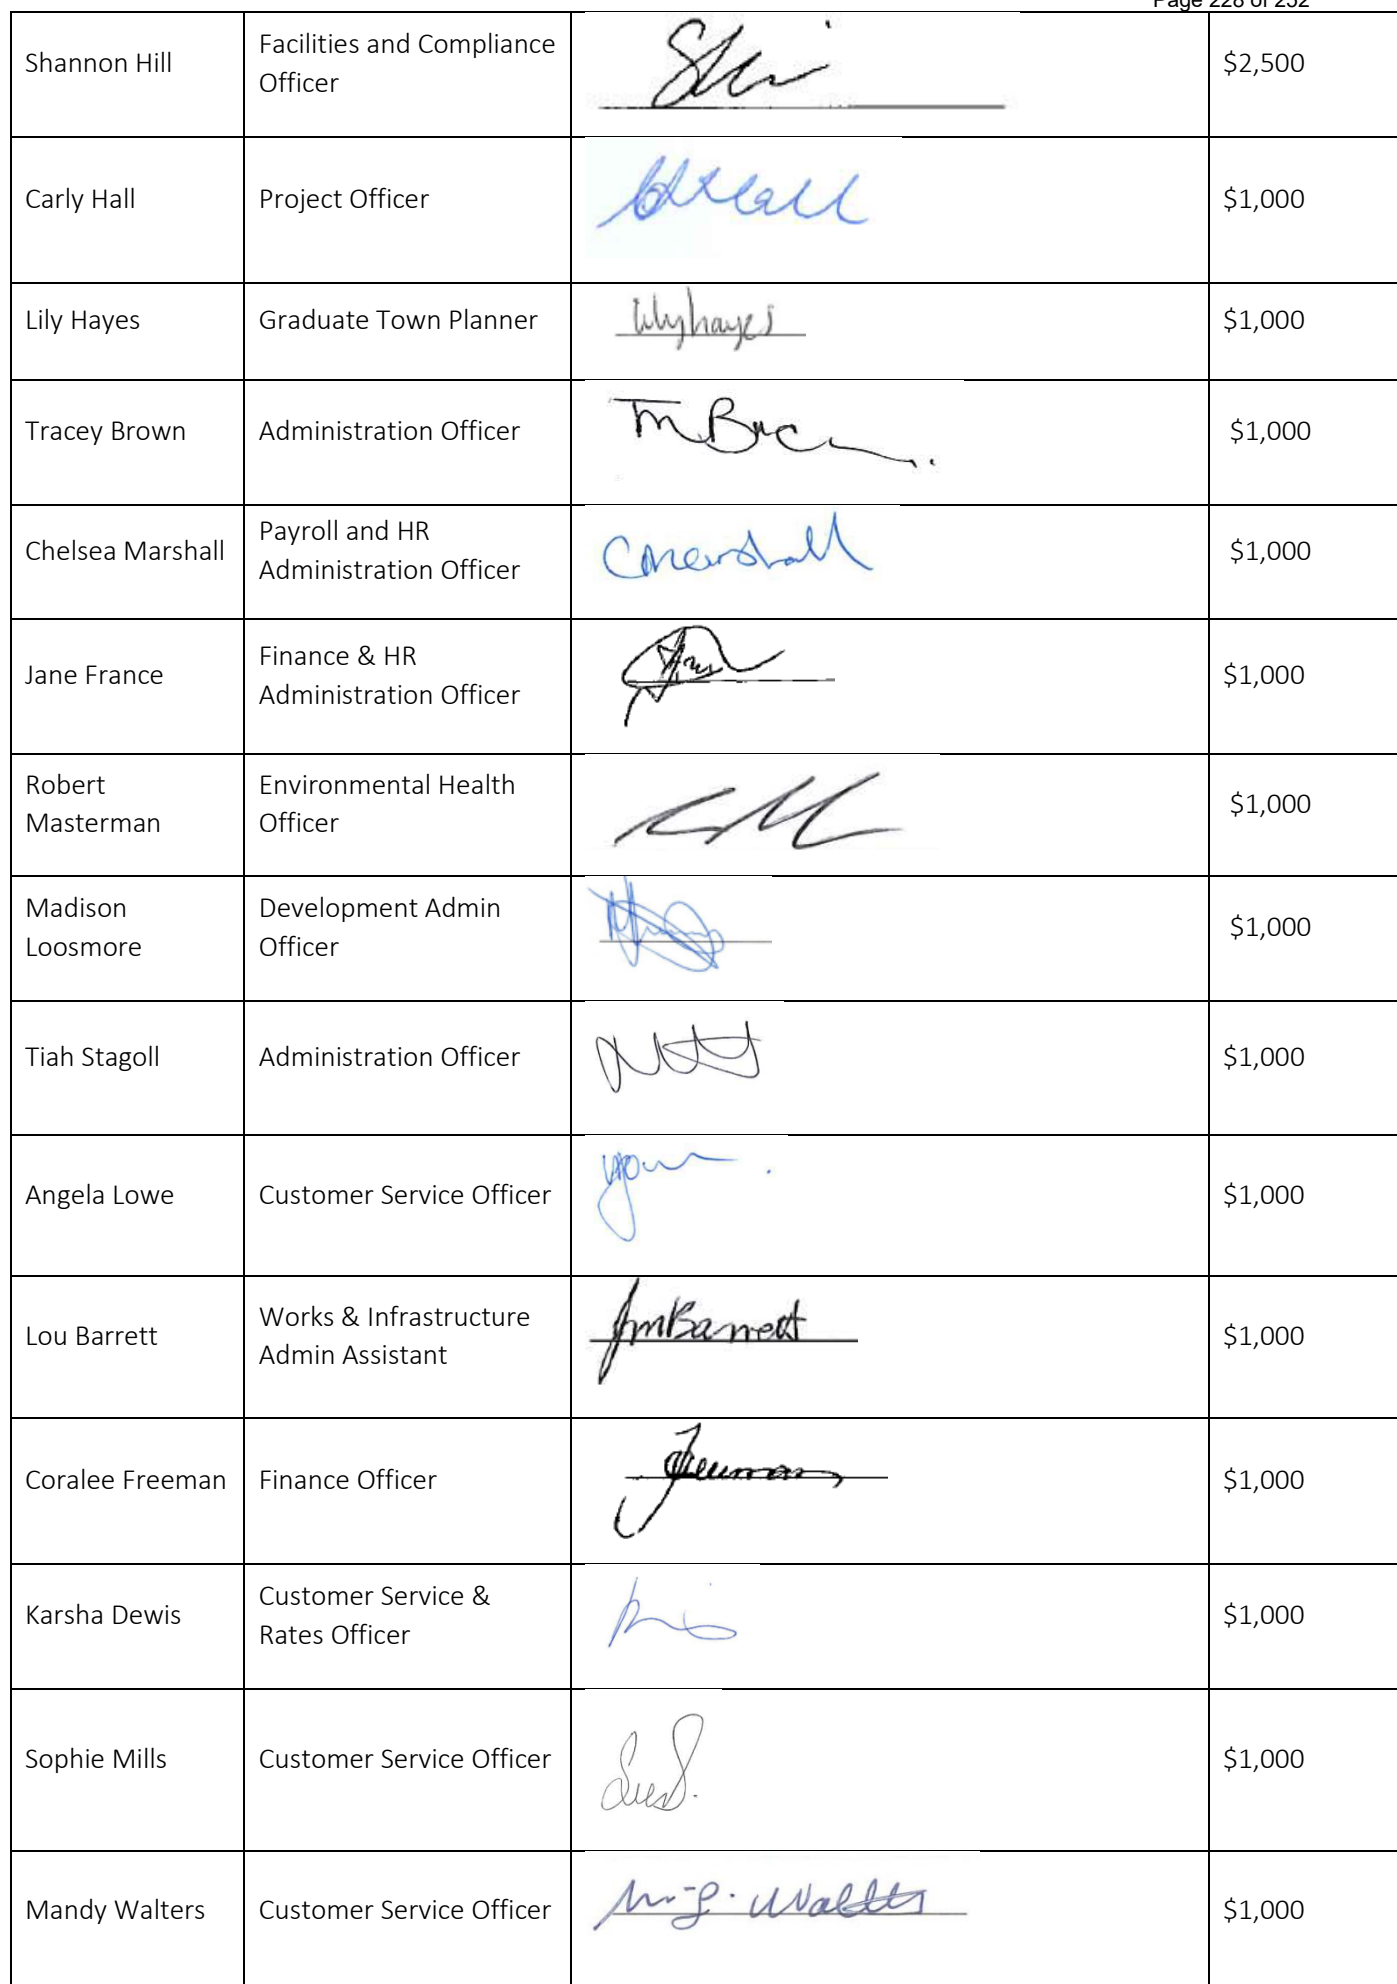 Page 228 of 232
Shannon Hill
Facilities and Compliance
Officer
$2,500
Carly Hall
Project Officer
$1,000
Lily Hayes
Graduate Town Planner
lilyhayes
$1,000
Tracey Brown
Administration Officer
$1,000
Chelsea Marshall
Payroll and HR
Administration Officer
CMarshall
$1,000
Jane France
Finance & HR
Administration Officer
$1,000
Robert
Masterman
Environmental Health
Officer
$1,000
Madison
Loosmore
Development Admin
Officer
$1,000
Tiah Stagoll
Administration Officer
$1,000
Angela Lowe
Customer Service Officer
$1,000
Lou Barrett
Works & Infrastructure
Admin Assistant
$1,000
Coralee Freeman
Finance Officer
$1,000
Karsha Dewis
Customer Service &
Rates Officer
$1,000
Sophie Mills
Customer Service Officer
$1,000
Mandy Walters
Customer Service Officer
$1,000